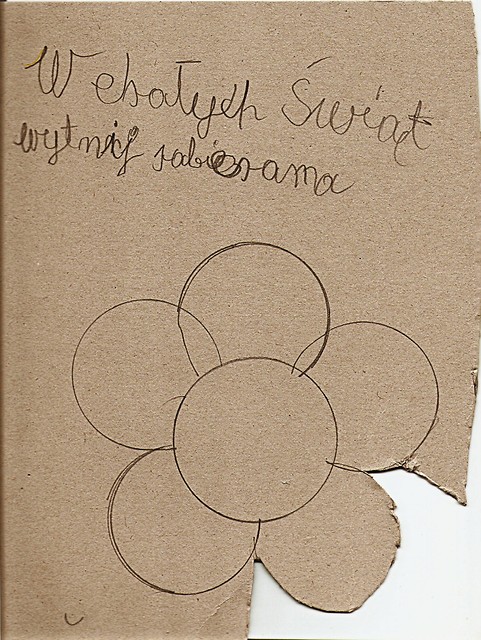 Wesołych Świąt
wytnij sobie sama